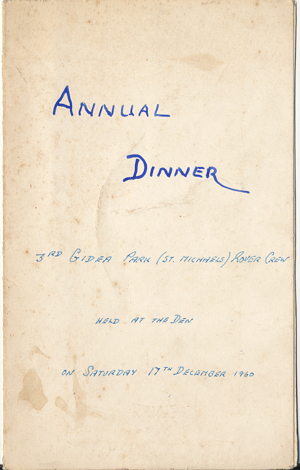 ANNUAL
DINNER
3RD GIDEA PARK (ST. MICHAELS) ROVER CREW
HELD AT THE DEN
ON SATURDAY 17TH DECEMBER 1960